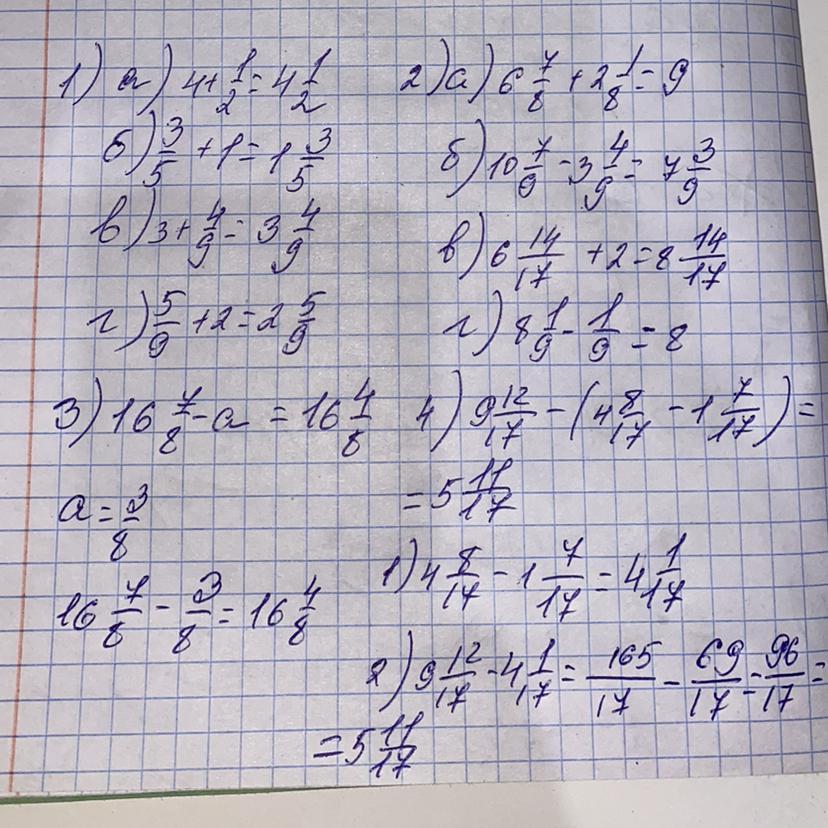 1) а) 4+1/2=4 1/2
б) 3/5+1=1 3/5
в) 3+4/9=3 4/9
г) 5/9+2=2 5/9
2) а) 6 7/8+2 1/8=9
б) 10 7/9-3 4/9=7 3/9
в) 6 14/17+2=8 14/17
г) 8 1/9-1/9=8
3) 16 7/8-a=16 4/8
a=3/8
16 7/8-3/8=16 4/8
4) 9 12/17-(4 8/17-1 7/17)=
=5 11/17
1) 4 8/17-1 7/17=4 1/17
2) 9 12/17-4 1/17=165/17-69/17=96/17=
=5 11/17